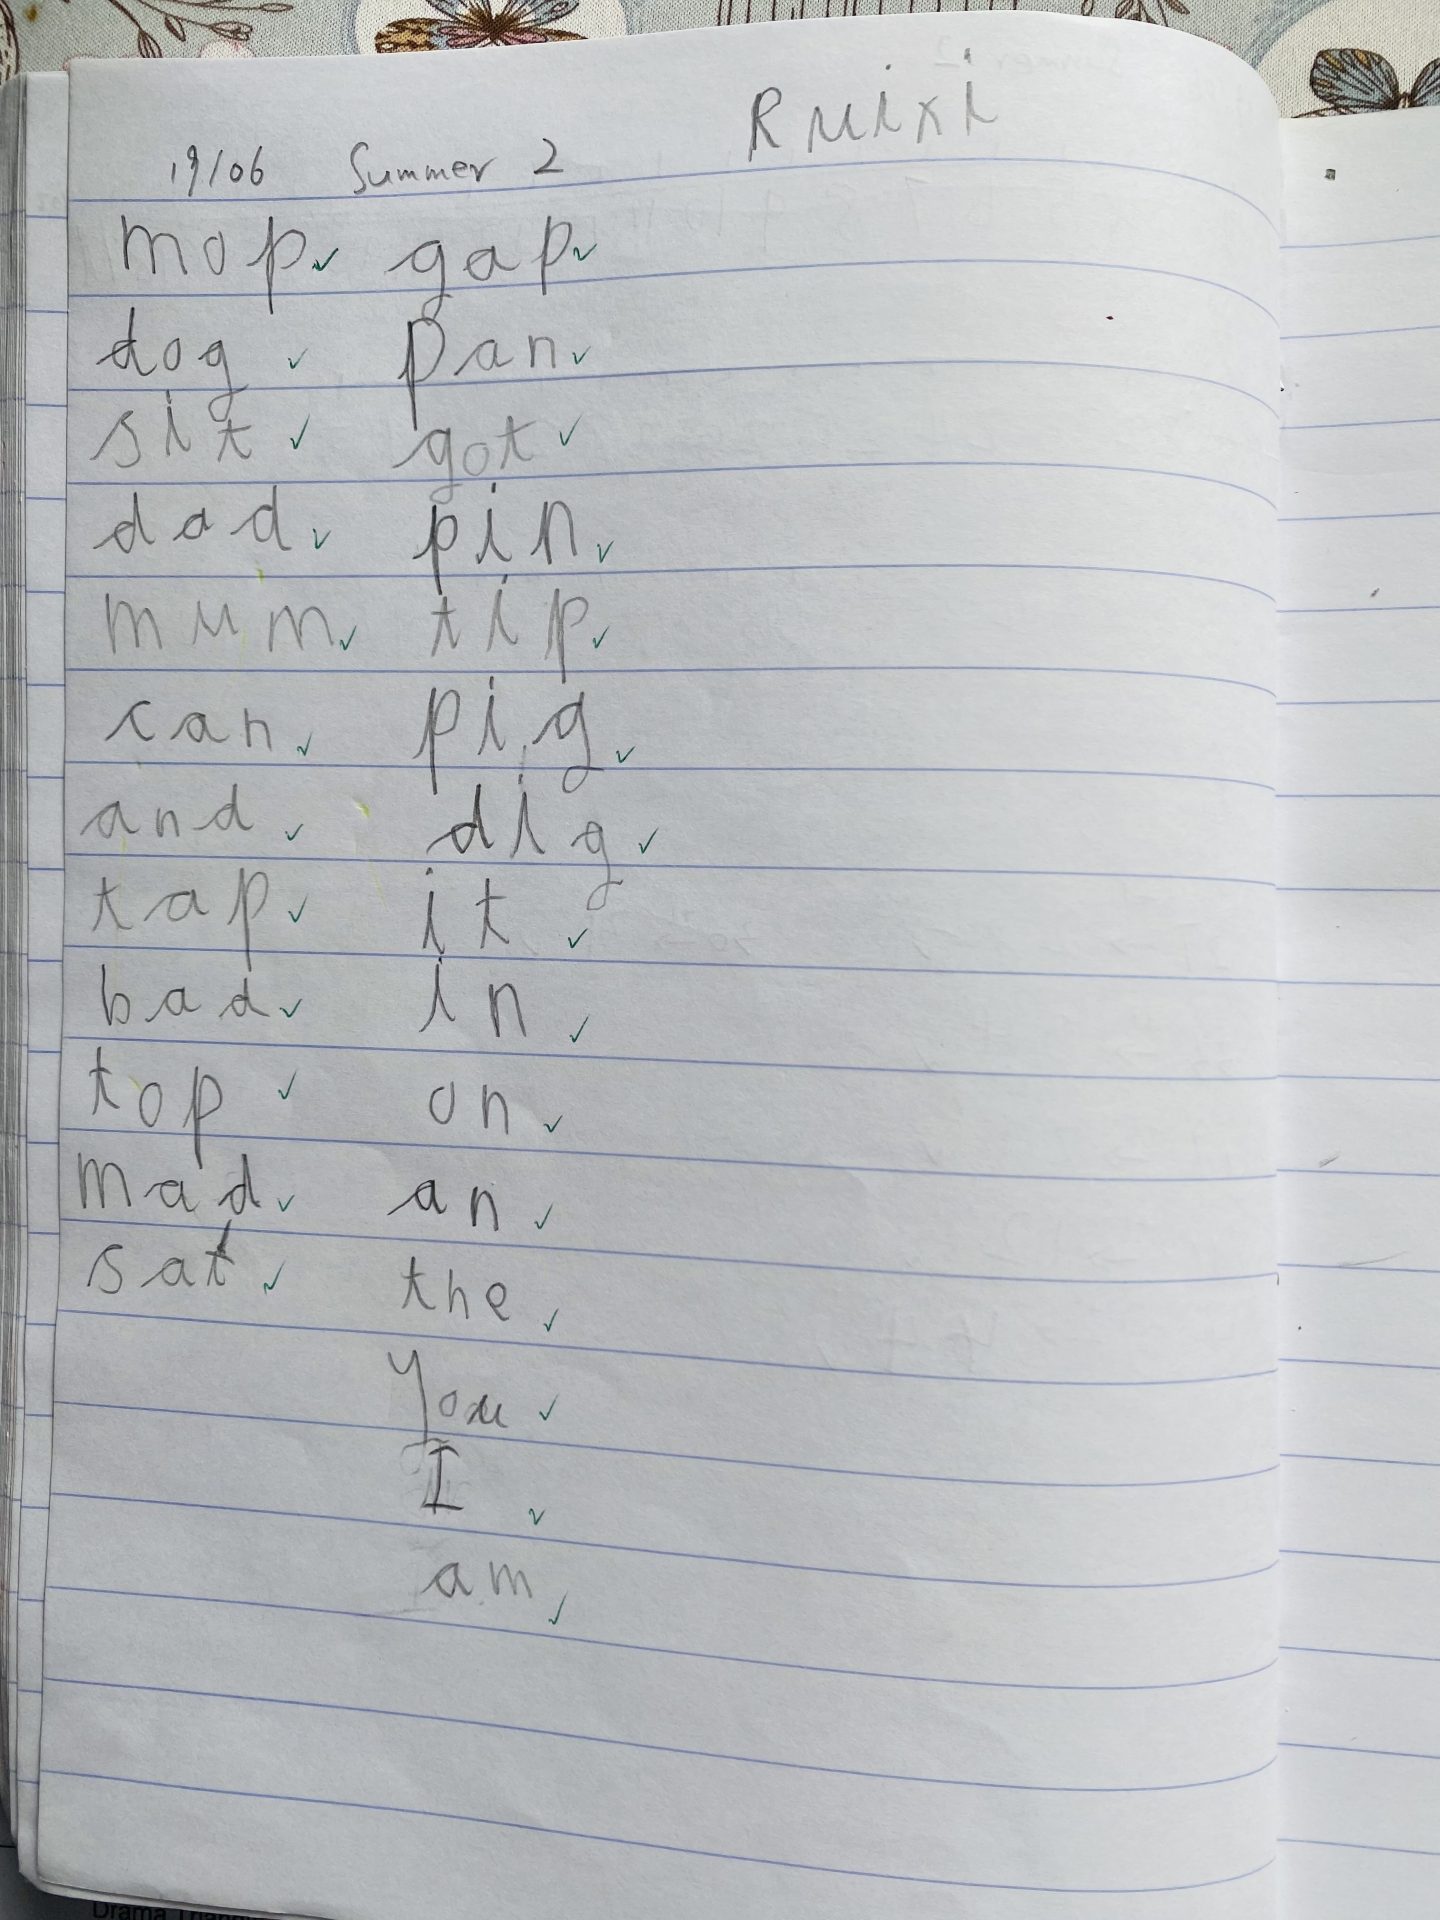 Ruixi
19/06 Summer 2
mop gap
dog pan
sit got
dad pin
mum tip
can pig
and dig
tap it
bad in
top on
mad an
sat the
you
I
am
Drama